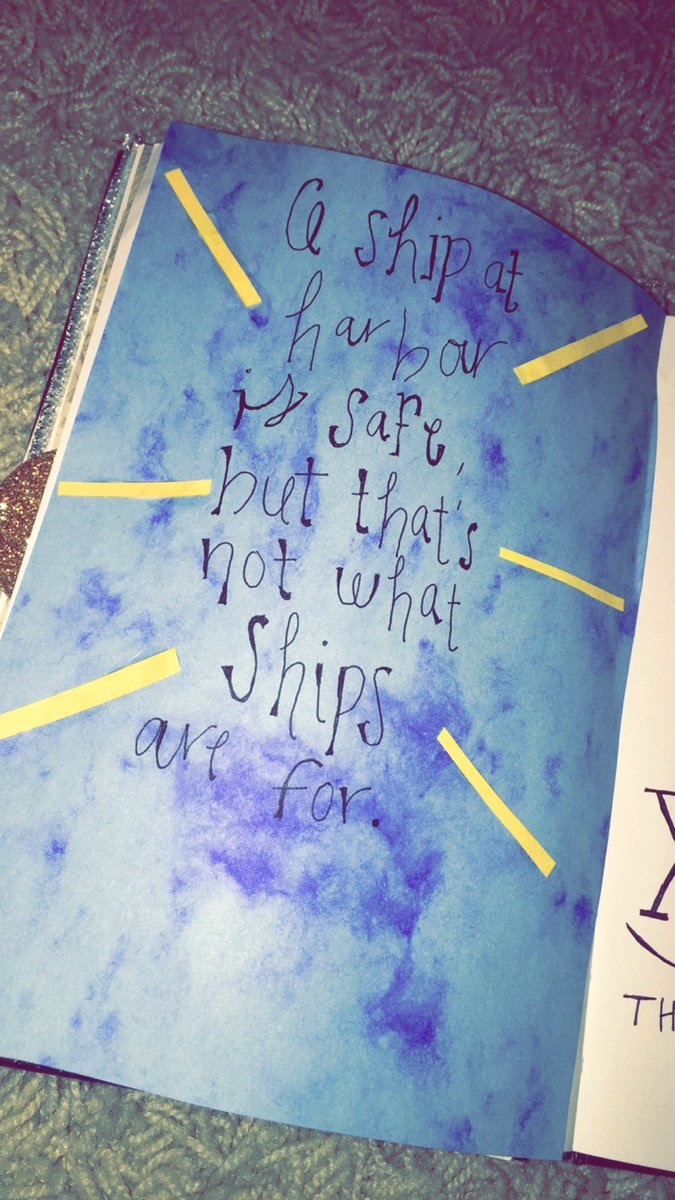 A ship at
harbor
is safe,
but that's
not what
ships
are for.
TH